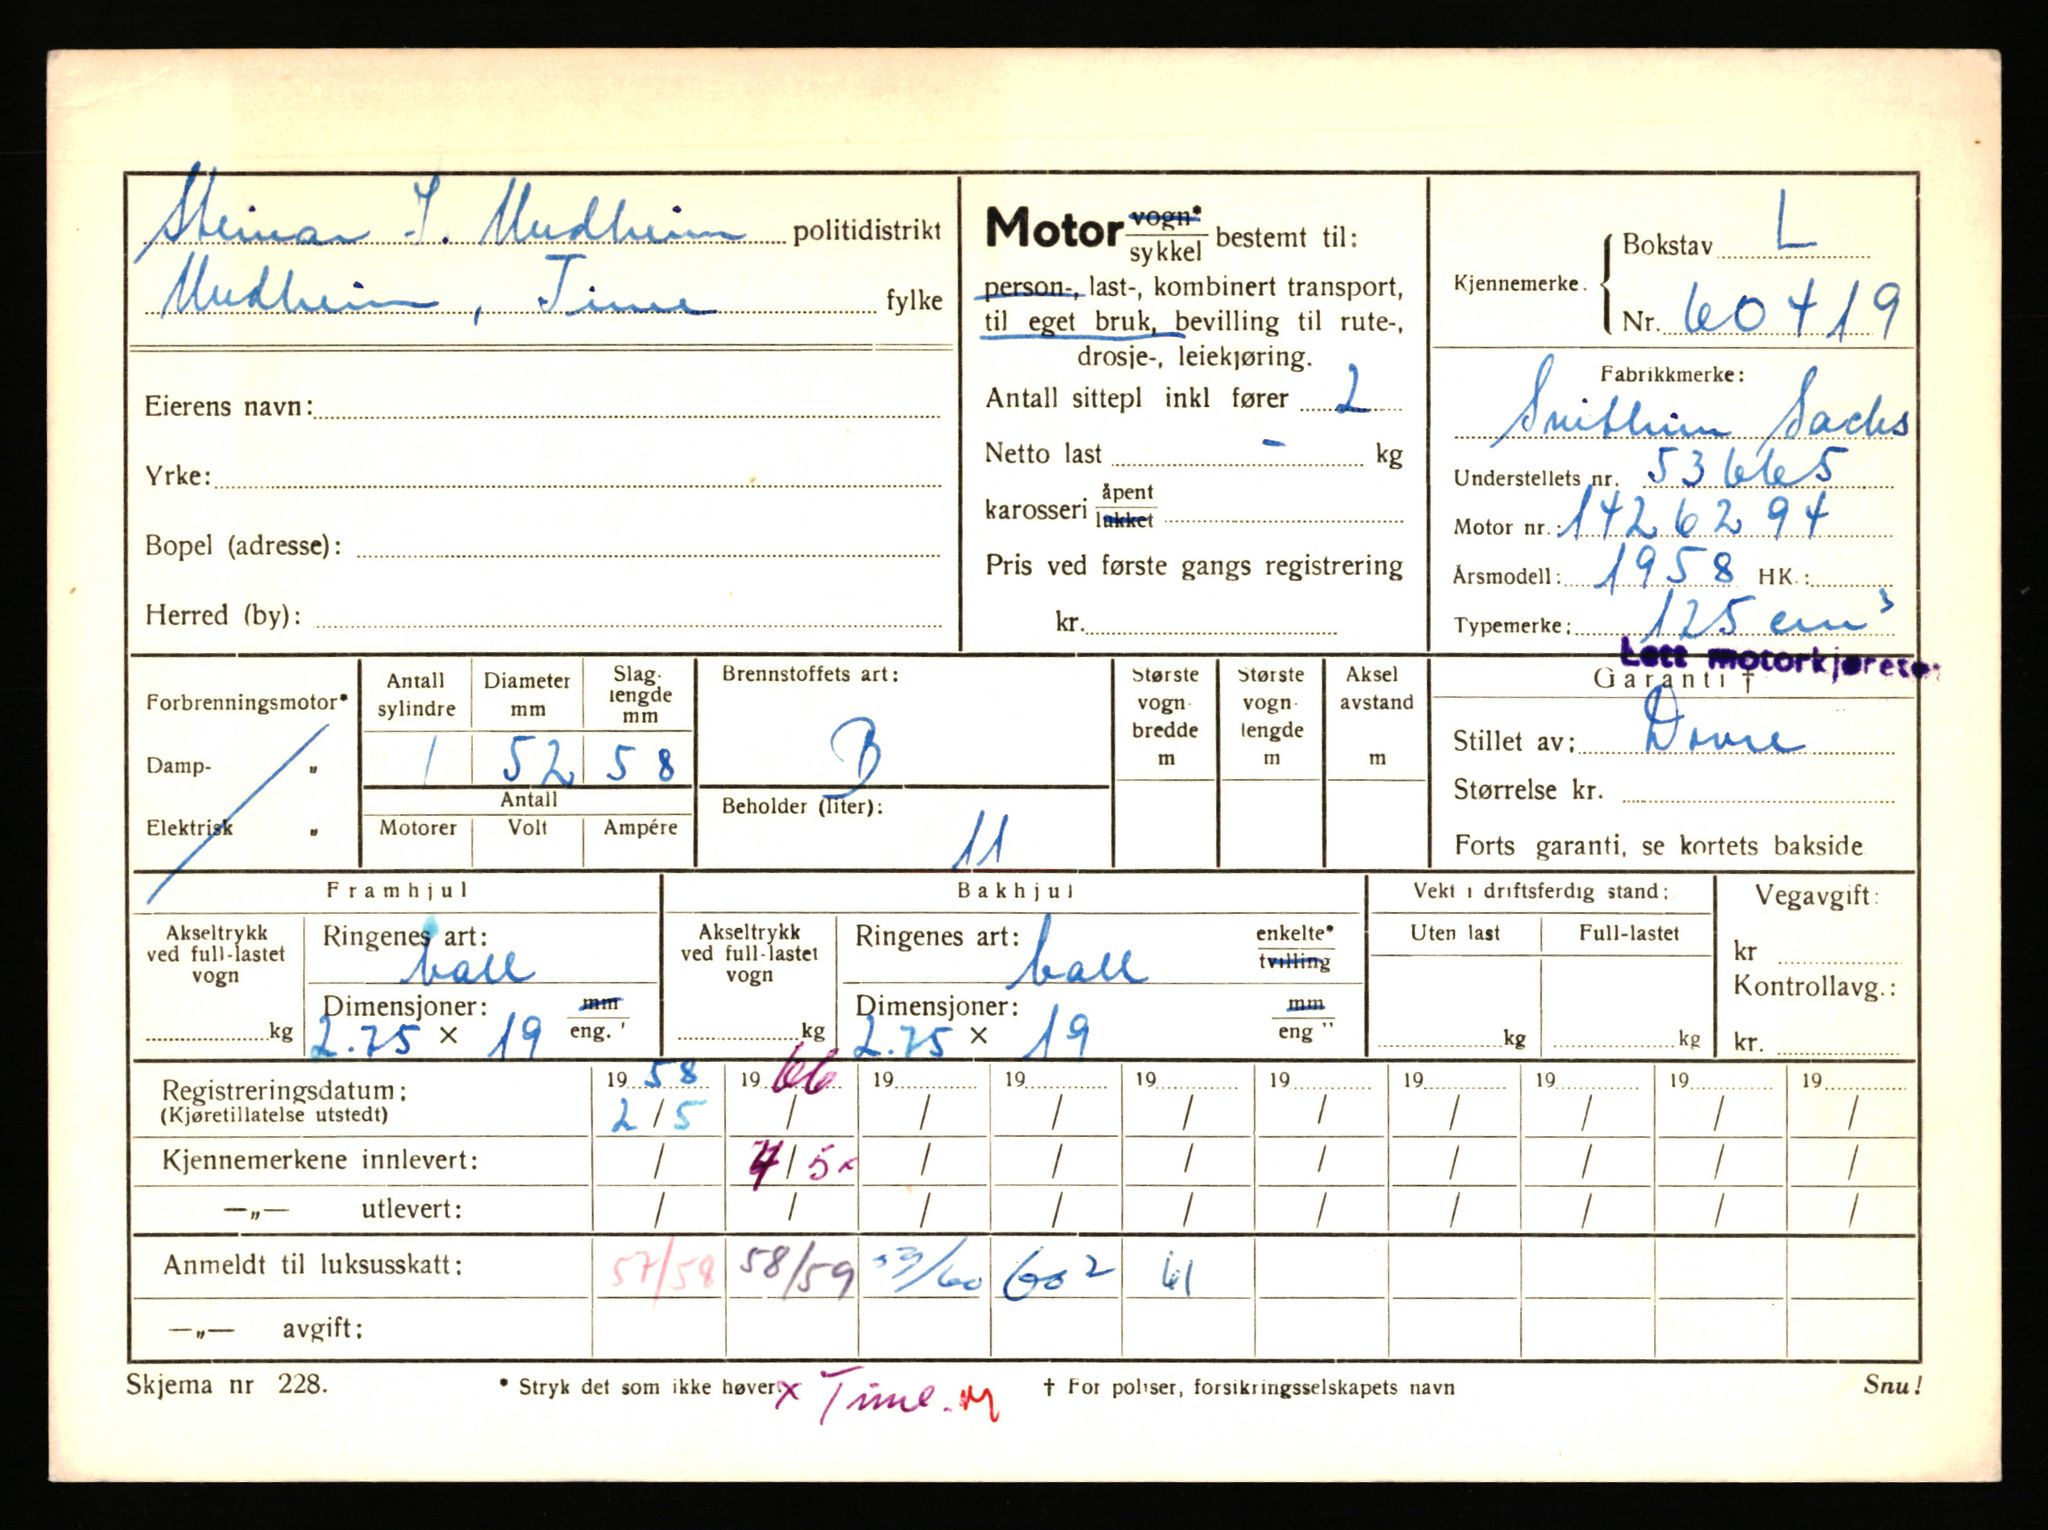 Steinar I. Undheim politidistrikt
Undheim, Time fylke
Eierens navn:
Yrke:
Bopel (adresse):
Herred (by):
Motor vogn* sykkel bestemt til:
person-, last-, kombinert transport,
til eget bruk, bevilling til rute-,
drosje-, leiekjøring.
Antall sittepl inkl fører 2
Netto last - kg
karosseri åpent lukket
Pris ved første gangs registrering
kr.
Kjennemerke. Bokstav L
Nr. 60419
Fabrikkmerke:
Sachs
Understellets nr. 53665
Motor nr.: 1426294
Årsmodell: 1958 HK.:
Typemerke: 125 cm³
Lett motorkjøretø
Garanti †
Stillet av: Dovre
Størrelse kr.
Forts garanti, se kortets bakside
Forbrenningsmotor*
Damp- „
Elektrisk „
Antall sylindre Diameter mm Slag-lengde mm
1 52 58
Antall
Motorer Volt Ampére
Brennstoffets art:
B
Beholder (liter):
11
Største vogn-bredde m
Største vogn-lengde m
Aksel avstand m
Framhjul
Akseltrykk ved full-lastet vogn kg
Ringenes art:
ball
Dimensjoner: mm eng.'
2.75 × 19
Bakhjul
Akseltrykk ved full-lastet vogn kg
Ringenes art: enkelte* tvilling
ball
Dimensjoner: mm eng "
2.75 × 19
Vekt i driftsferdig stand:
Uten last Full-lastet
kg kg
Vegavgift:
kr
Kontrollavg.:
kr.
Registreringsdatum: 19 58 19 66 19 19 19 19 19 19 19 19
(Kjøretillatelse utstedt) 2 / 5 / / / / / / / / /
Kjennemerkene innlevert: / 4 / 5 × / / / / / / / /
—„— utlevert: / / / / / / / / / /
Anmeldt til luksusskatt: 57/58 58/59 59/60 60 2 61
—„— avgift:
Skjema nr 228. * Stryk det som ikke høver. × Time. † For poliser, forsikringsselskapets navn Snu!